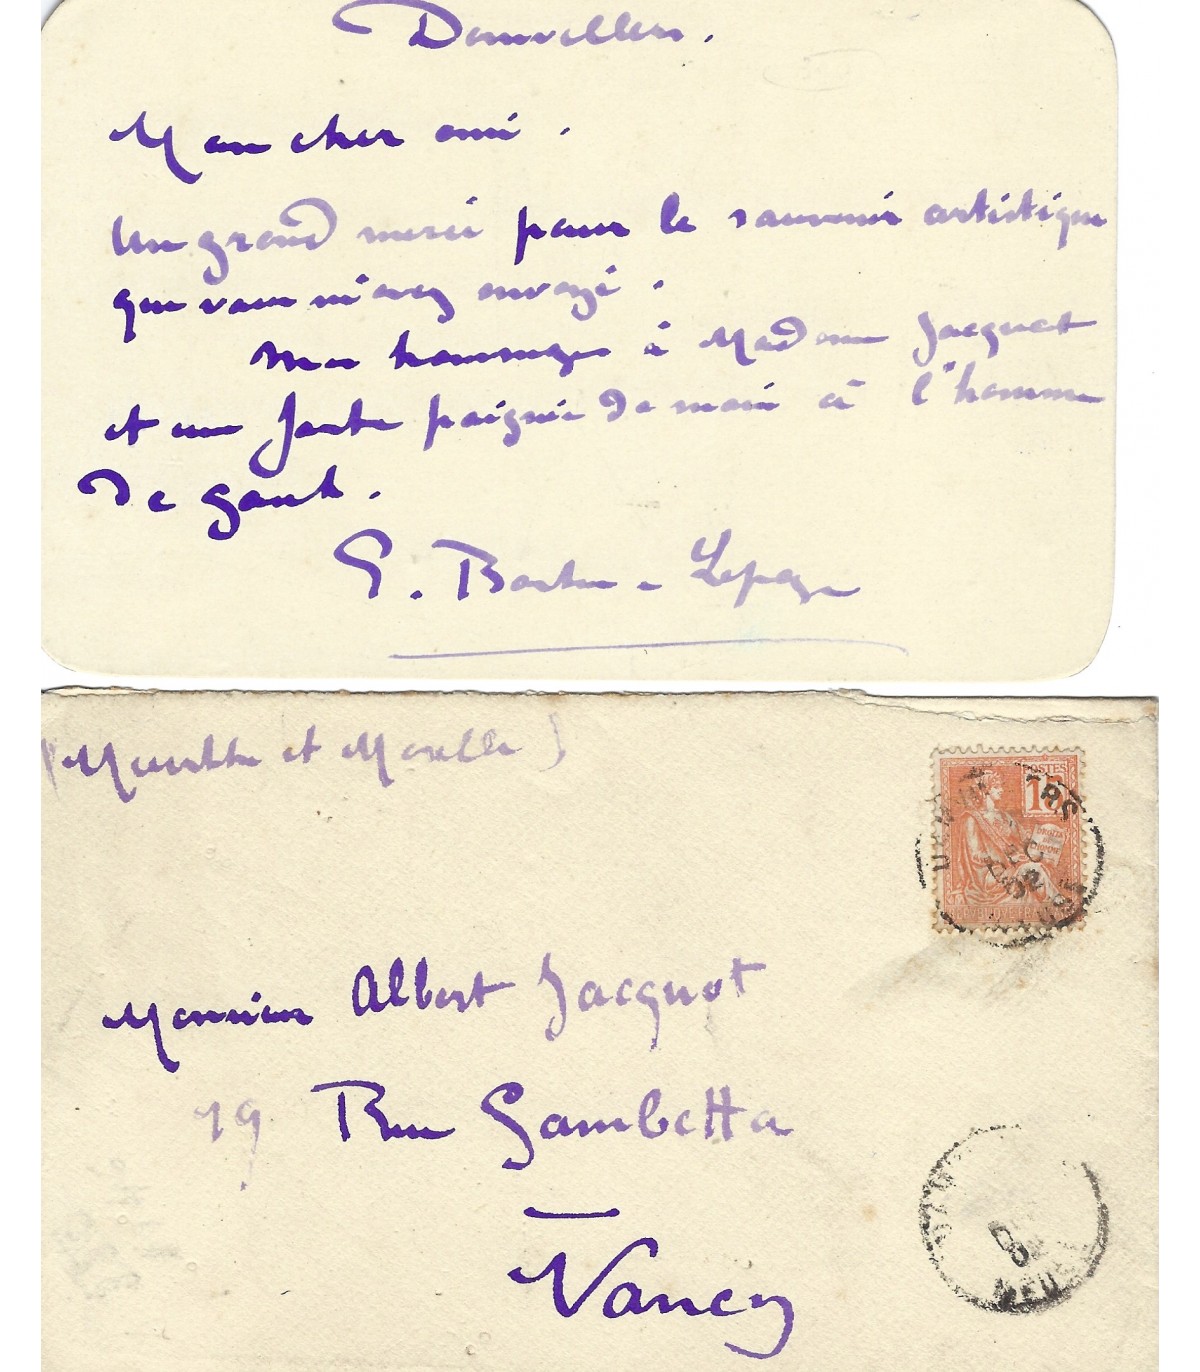 Damvillers.
Mon cher ami.
Un grand merci pour le souvenir artistique
que vous m'avez envoyé.
Mes hommages à Madame Jacquot
et une forte poignée de main à l'homme
de gout.
E. Bastien-Lepage
(Meurthe et Moselle)
POSTES
15
DROITS
DE
HOMME
Monsieur Albert Jacquot
19 Rue Gambetta
Nancy